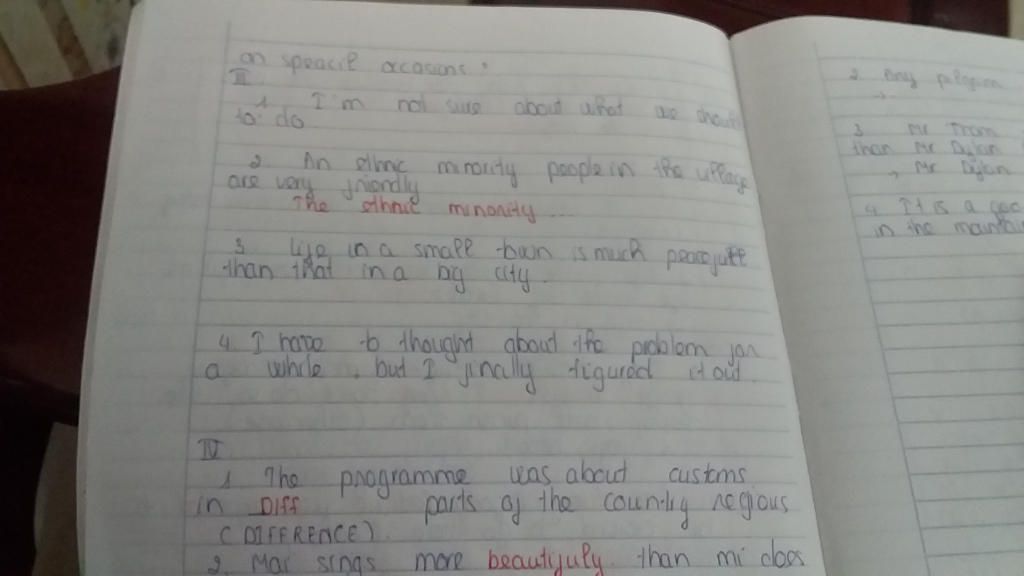 on speacil occasions?
II
1. I'm not sure about what are
to do
2. An ethnic minority people in the village
are very friendly
The ethnic minority ...
3. Life in a small town is much peacefull
than that in a big city.
4. I have to thought about the problem for
a while, but I finally figured it out.
IV
1. The programme was about customs
in Diff parts of the country regious
(DIFFERENCE)
2. Mai sings more beautifuly than mi does
2. Any
3. Mr
than Mr Dylan
→ Mr Dylan
4. It is a
in the